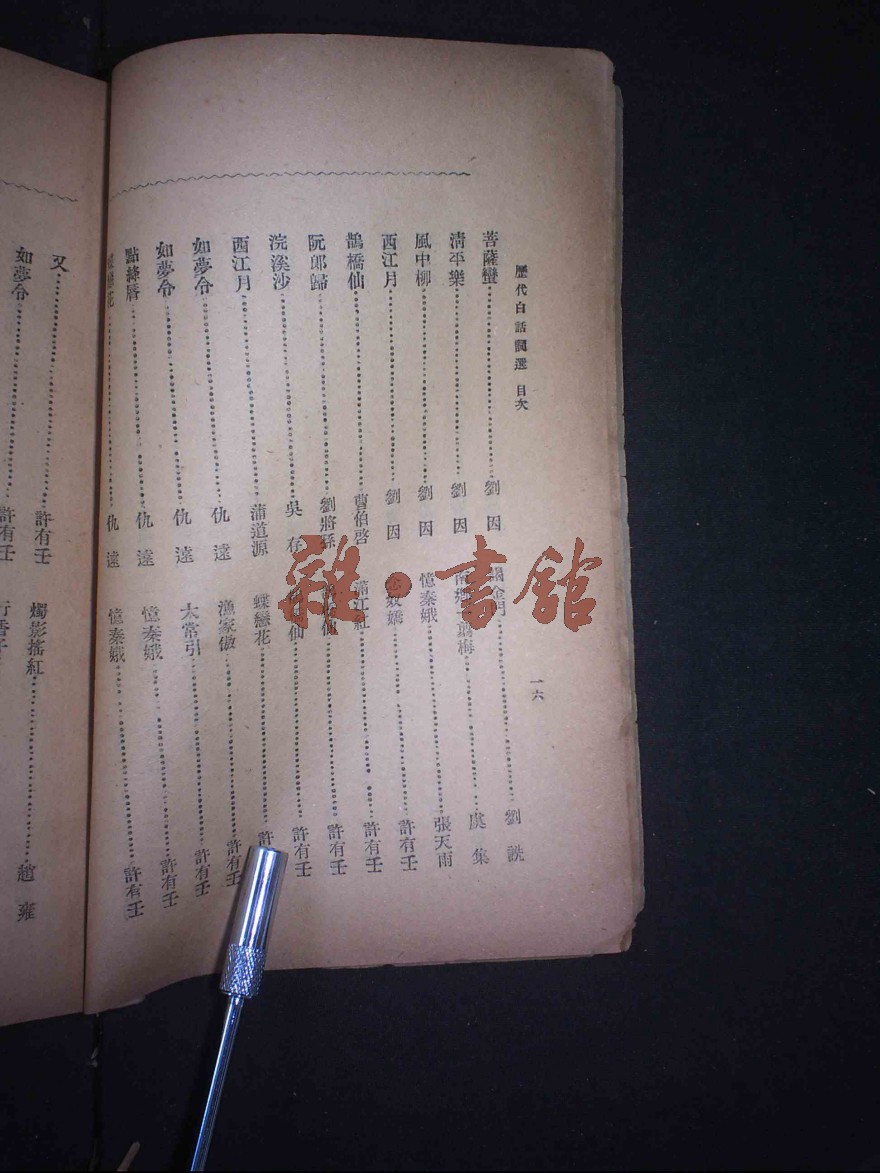 歷代白話詞選 目次
一六
菩薩蠻 劉因
清平樂 劉因
風中柳 劉因
西江月 劉因
鵲橋仙 曹伯啓
阮郎歸 劉將孫
浣溪沙 吳存
西江月 蒲道源
如夢令 仇遠
如夢令 仇遠
點絳唇 仇遠
花 仇遠
謁金門 劉詵
南鄉一剪梅 虞集
憶秦娥 張天雨
念奴嬌 許有壬
滿江紅 許有壬
仙 許有壬
仙 許有壬
蝶戀花 許
漁家傲 許有壬
太常引 許有壬
憶秦娥 許有壬
憶秦娥 許有壬
又 許有壬
如夢令 許有壬
燭影搖紅 趙雍
行香子
雜·書館